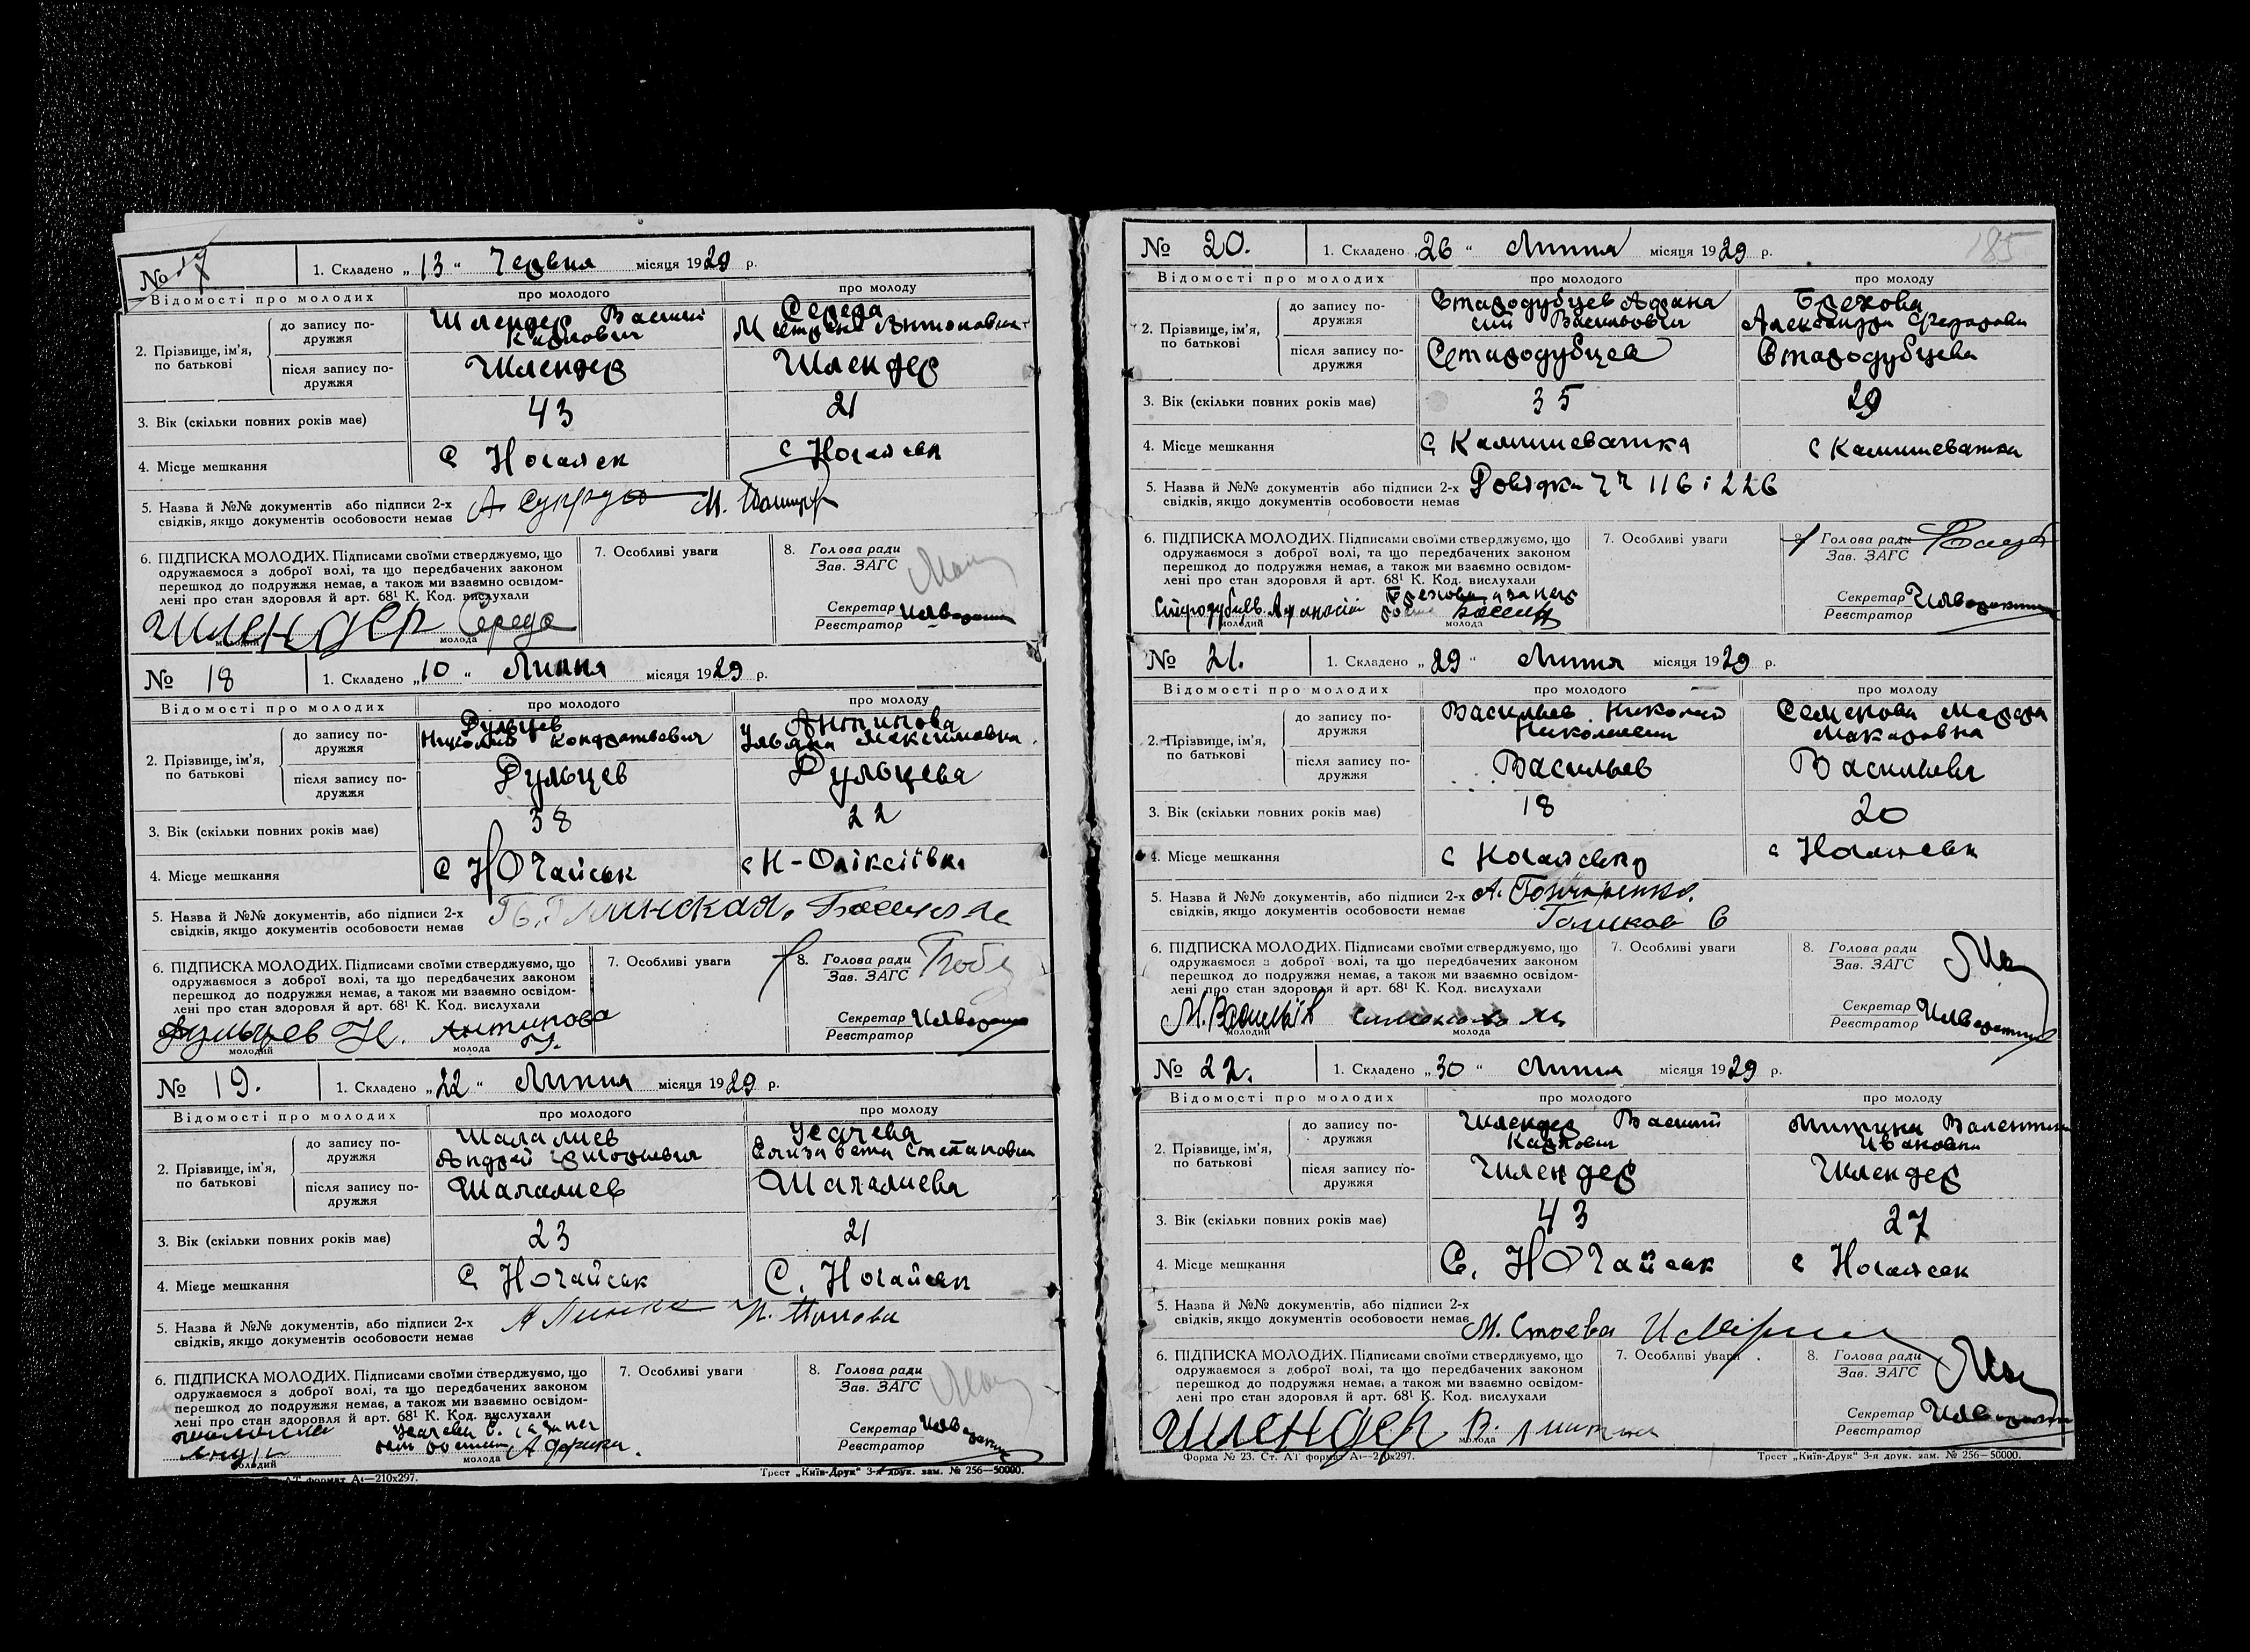 № 17
1. Складено „ 13 “ Червня місяця 1929 р.
Відомості про молодих про молодого про молоду
2. Прізвище, ім'я, по батькові
до запису по-
дружжя
Шлендер Василий
Карлович
Середа
Мотрена Антоновна
після запису по-
дружжя
Шлендер Шлендер
3. Вік (скільки повних років має) 43 21
4. Місце мешкання С Ногайск с Ногайськ
5. Назва й №№ документів або підписи 2-х
свідків, якщо документів особовости немає
6. ПІДПИСКА МОЛОДИХ. Підписами своїми стверджуємо, що
одружаємося з доброї волі, та що передбачених законом
перешкод до подружжя немає, а також ми взаємно освідом-
лені про стан здоровля й арт. 68¹ К. Код. вислухали
Шлендер Середа
молодий молода
7. Особливі уваги
8. Голова ради
Зав. ЗАГС
Секретар
Реєстратор
№ 18
1. Складено „ 10 “ Липня місяця 1929 р.
Відомості про молодих про молодого про молоду
2. Прізвище, ім'я, по батькові
до запису по-
дружжя
Рульцев
Николай Кондратьевич
Антипова
Ульяна Максимовна
після запису по-
дружжя
Рульцев Рульцева
3. Вік (скільки повних років має) 38 22
4. Місце мешкання С Ногайськ с Н-Олексіївка
5. Назва й №№ документів, або підписи 2-х
свідків, якщо документів особовости немає
6. ПІДПИСКА МОЛОДИХ. Підписами своїми стверджуємо, що
одружаємося з доброї волі, та що передбачених законом
перешкод до подружжя немає, а також ми взаємно освідом-
лені про стан здоровля й арт. 68¹ К. Код. вислухали
Рульцев Н. Антипова
молодий молода
7. Особливі уваги
8. Голова ради
Зав. ЗАГС
Секретар
Реєстратор
№ 19.
1. Складено „ 22 “ Липня місяця 1929 р.
Відомості про молодих про молодого про молоду
2. Прізвище, ім'я, по батькові
до запису по-
дружжя
Андрей Григорьевич
Усачева
Елизавета Степановна
після запису по-
дружжя
3. Вік (скільки повних років має) 23 21
4. Місце мешкання С Ногайськ С. Ногайськ
5. Назва й №№ документів, або підписи 2-х
свідків, якщо документів особовости немає
Попова
6. ПІДПИСКА МОЛОДИХ. Підписами своїми стверджуємо, що
одружаємося з доброї волі, та що передбачених законом
перешкод до подружжя немає, а також ми взаємно освідом-
лені про стан здоровля й арт. 68¹ К. Код. вислухали
молодий молода
7. Особливі уваги
8. Голова ради
Зав. ЗАГС
Секретар
Реєстратор
формат А₁—210х297. Трест „Київ-Друк“ 3-я друк. зам. № 256—50000.
185
№ 20.
1. Складено „ 26 “ Липня місяця 1929 р.
Відомості про молодих про молодого про молоду
2. Прізвище, ім'я, по батькові
до запису по-
дружжя
Стародубцев Афана
сий Васильович
Брехова
Александра Федоровна
після запису по-
дружжя
Стародубцев Стародубцева
3. Вік (скільки повних років має) 35 29
4. Місце мешкання С Камишеватка С Камишеватка
5. Назва й №№ документів або підписи 2-х
свідків, якщо документів особовости немає
Довідки 116 і 226
6. ПІДПИСКА МОЛОДИХ. Підписами своїми стверджуємо, що
одружаємося з доброї волі, та що передбачених законом
перешкод до подружжя немає, а також ми взаємно освідом-
лені про стан здоровля й арт. 68¹ К. Код. вислухали
молодий молода
7. Особливі уваги
8. Голова ради
Зав. ЗАГС
Секретар
Реєстратор
№ 21.
1. Складено „ 29 “ Липня місяця 1929 р.
Відомості про молодих про молодого про молоду
2. Прізвище, ім'я, по батькові
до запису по-
дружжя
Васильев Николай
Николаевич
Семенова Марфа
Макаровна
після запису по-
дружжя
Васильев Васильева
3. Вік (скільки повних років має) 18 20
4. Місце мешкання с Ногайськ с Ногайськ
5. Назва й №№ документів, або підписи 2-х
свідків, якщо документів особовости немає
А. Гончаренко.
Голиков С
6. ПІДПИСКА МОЛОДИХ. Підписами своїми стверджуємо, що
одружаємося з доброї волі, та що передбачених законом
перешкод до подружжя немає, а також ми взаємно освідом-
лені про стан здоровля й арт. 68¹ К. Код. вислухали
молодий молода
7. Особливі уваги
8. Голова ради
Зав. ЗАГС
Секретар
Реєстратор
№ 22.
1. Складено „ 30 “ Липня місяця 1929 р.
Відомості про молодих про молодого про молоду
2. Прізвище, ім'я, по батькові
до запису по-
дружжя
Шлендер Василий
Карлович
Митина Валентина
Ивановна
після запису по-
дружжя
Шлендер Шлендер
3. Вік (скільки повних років має) 43 27
4. Місце мешкання С. Ногайськ с Ногайськ
5. Назва й №№ документів, або підписи 2-х
свідків, якщо документів особовости немає
М. Стоева
6. ПІДПИСКА МОЛОДИХ. Підписами своїми стверджуємо, що
одружаємося з доброї волі, та що передбачених законом
перешкод до подружжя немає, а також ми взаємно освідом-
лені про стан здоровля й арт. 68¹ К. Код. вислухали
Шлендер В.
молода
7. Особливі уваги
8. Голова ради
Зав. ЗАГС
Секретар
Реєстратор
Форма № 23. Ст. А1 формат А₁—210х297. Трест „Київ-Друк“ 3-я друк. зам. № 256—50000.